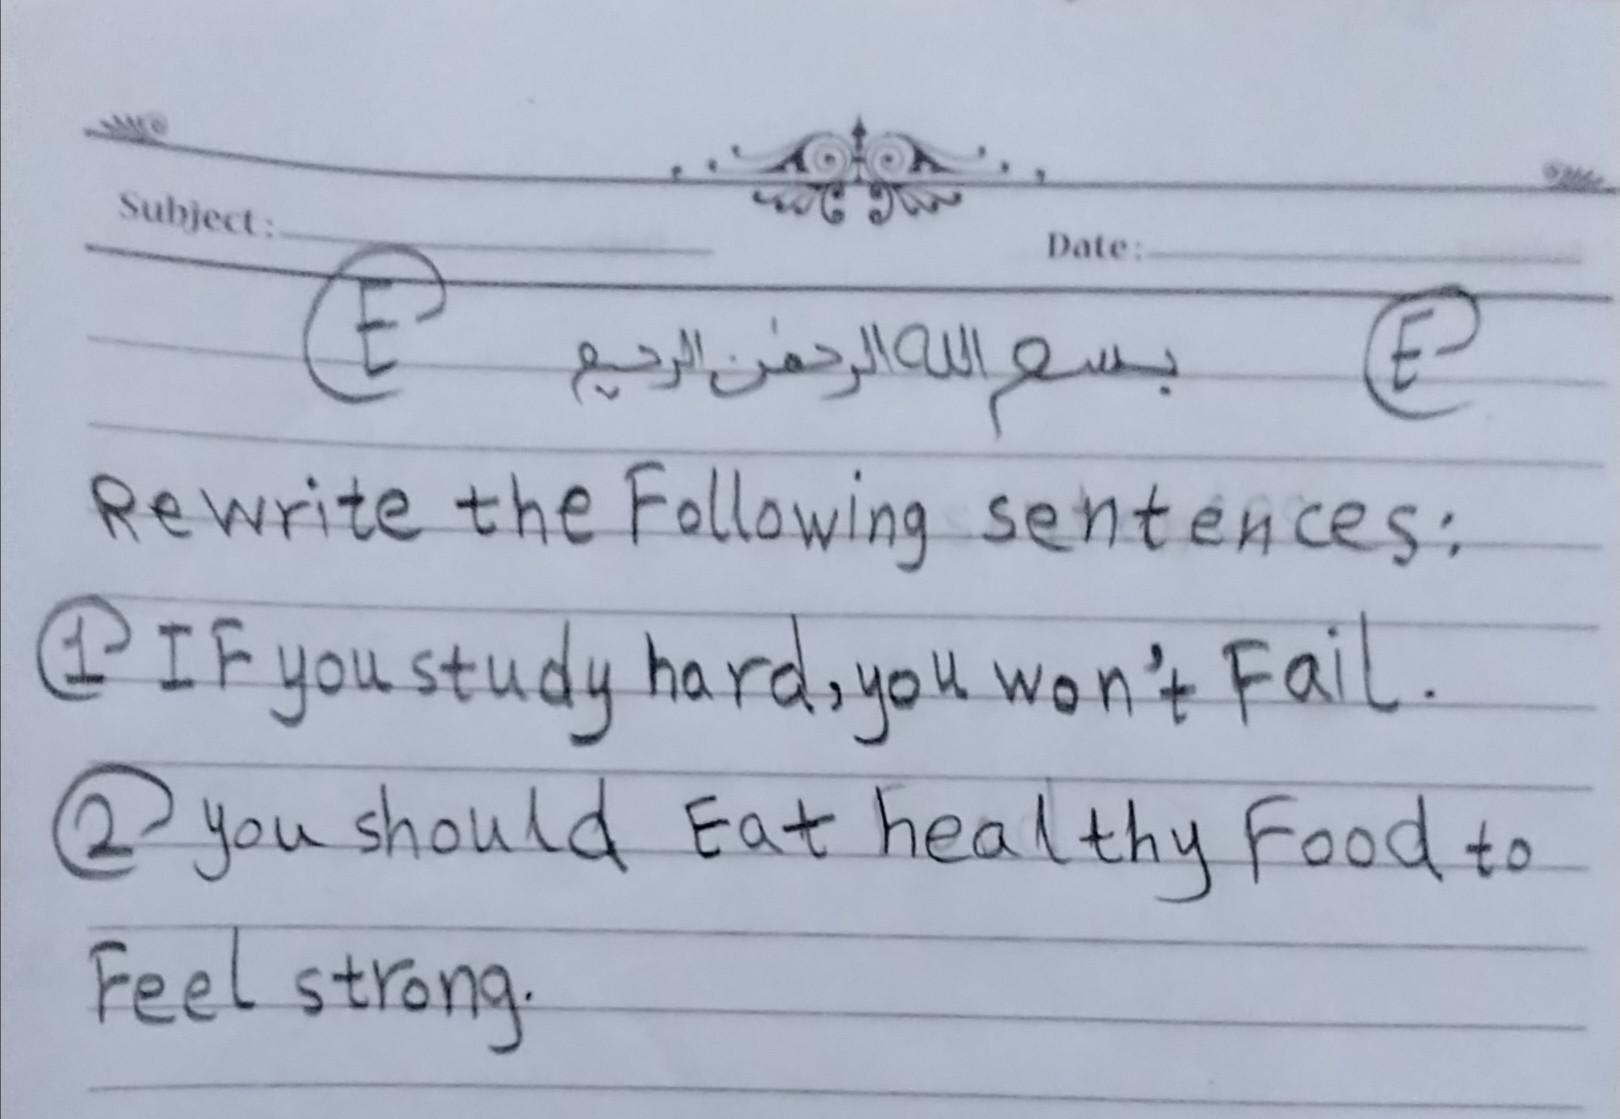 Subject:
Date:
E بسم الله الرحمن الرحيم E
Rewrite the Following sentences:
1 IF you study hard, you won't Fail.
2 you should Eat healthy Food to
Feel strong.